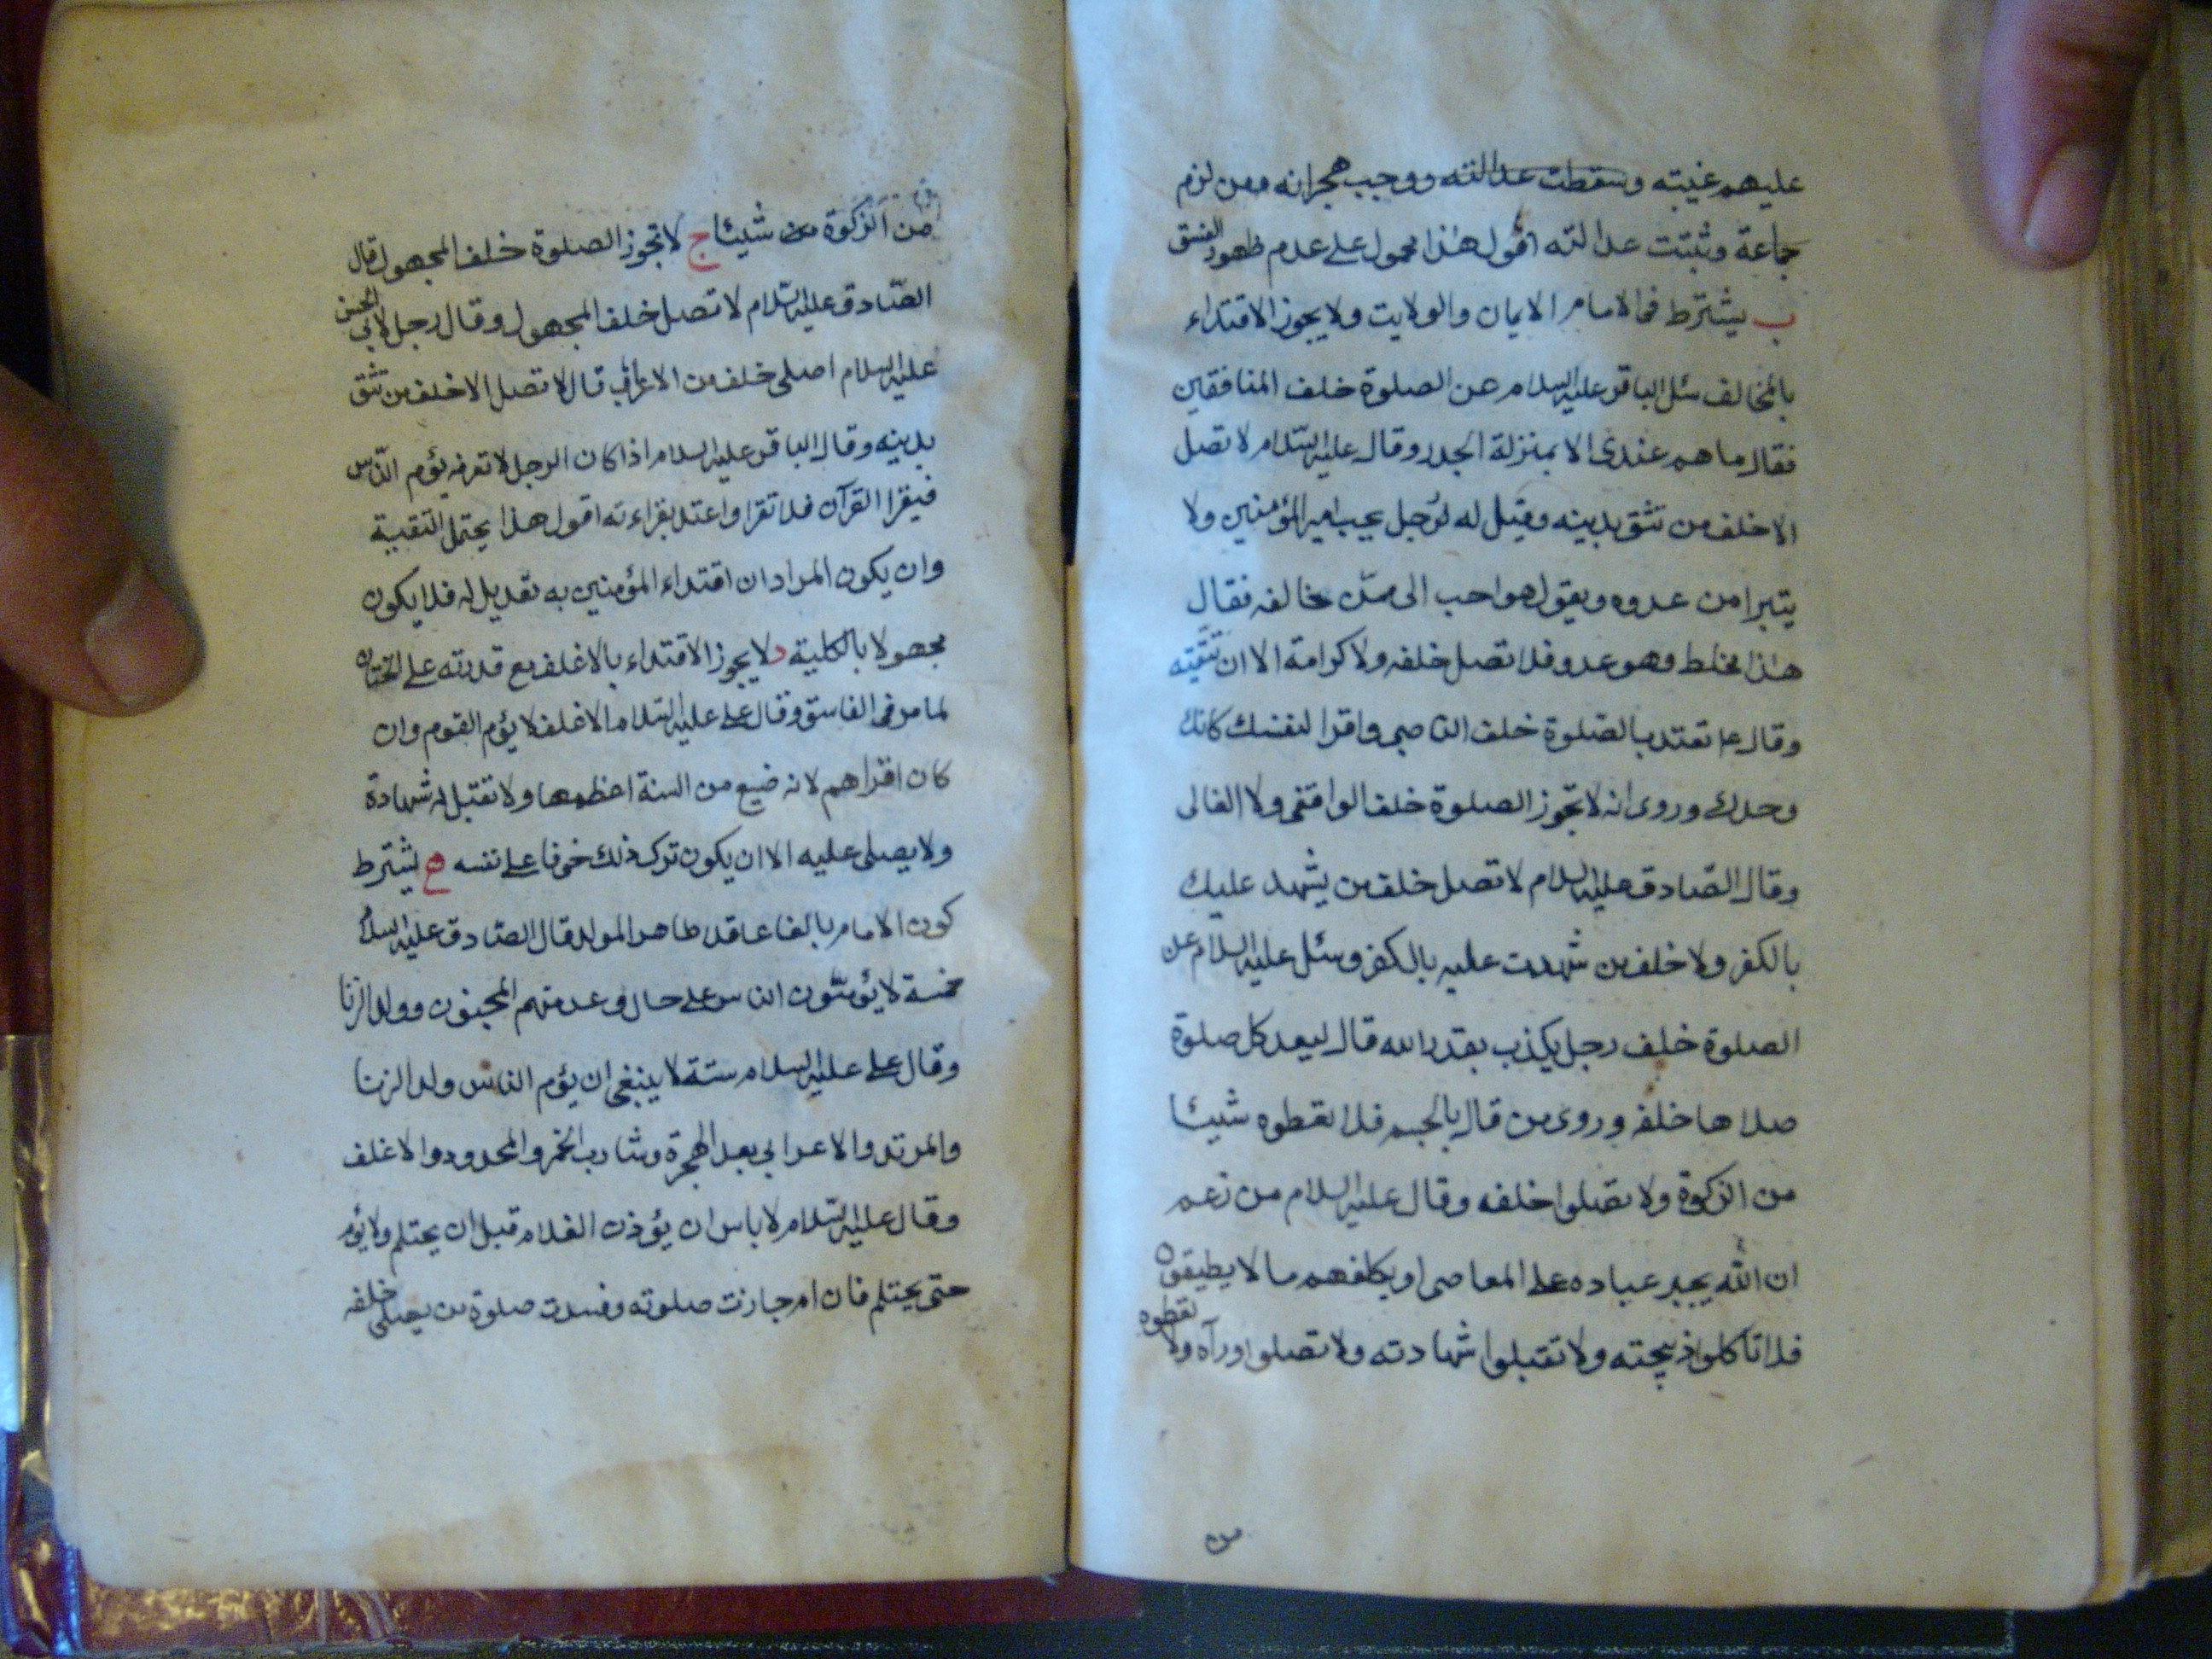 عليهم غيبته وسقطت عدالته ووجب هجرانه ومن لزم
جماعة وثبتت عدالته اقول هذا محمول على عدم ظهور الفسق
ب يشترط فى الامام الايمان والولايت ولا يجوز الاقتداء
بالمخالف سئل الباقر عليه السلام عن الصلوة خلف المنافقين
فقال ما هم عندى الا بمنزلة الجدر وقال عليه السّلام لا تصل
الا خلف من تثق بدينه وقيل له لرجل يحب امير المؤمنين ولا
يتبرا من عدوه ويقول هو احب الى ممّن خالفه فقال
هذا مخلط وهو عدو فلا تصل خلفه ولا كرامة الا ان تتقيه
وقال ع تعتد بالصّلوة خلف الناصبى واقرا لنفسك كانك
وحدك وروى انه لا تجوز الصلوة خلف الواقفى ولا الغالى
وقال الصّادق عليه السلام لا تصل خلف من يشهد عليك
بالكفر ولا خلف من شهدت عليه بالكفر وسئل عليه السلام عن
الصلوة خلف رجل يكذب بقدر الله قال ليعد كل صلوة
صلاها خلفه وروى من قال بالجسم فلا تعطوه شيئا
من الزكوة ولا تصلوا خلفه وقال عليه السلام من زعم
ان الله يجبر عباده على المعاصى او يكلفهم ما لا يطيقون
فلا تاكلوا ذبيحته ولا تقبلوا شهادته ولا تصلوا ورآه ولا تعطوه
من
من الزكوة شيئا ج لا تجوز الصلوة خلف المجهول قال
الصّادق عليه السّلام لا تصل خلف المجهول وقال رجل لابى الحسن
عليه السلام اصلى خلف من لا اعرف قال لا تصل الا خلف من تثق
بدينه وقال الباقر عليه السلام اذا كان الرجل لا تعرفه يؤم النّاس
فيقرا القرآن فلا تقرا واعتد بقراءته اقول هذا يحتمل التقية
وان يكون المراد ان اقتداء المؤمنين به تعديل له فلا يكون
مجهولا بالكلية د لا يجوز الاقتداء بالاغلف مع قدرته على الختان
لما مر فى الفاسق وقال على عليه السّلام الاغلف لا يؤم القوم وان
كان اقراهم لانه ضيع من السنة اعظمها ولا تقبل له شهادة
ولا يصلى عليه الا ان يكون ترك ذلك خوفا على نفسه ه يشترط
كون الامام بالغا عاقلا طاهر المولد قال الصّادق عليه السلام
خمسة لا يؤمّون الناس على حال وعد منهم المجنون وولد الزنا
وقال على عليه السلام ستة لا ينبغى ان يؤم الناس ولد الزنا
والمرتد والاعرابي بعد الهجرة وشارب الخمر والمحدود والاغلف
وقال عليه السّلام لا باس ان يؤذن الغلام قبل ان يحتلم ولا يؤم
حتى يحتلم فان ام جازت صلوته وفسدت صلوة من يصلى خلفه